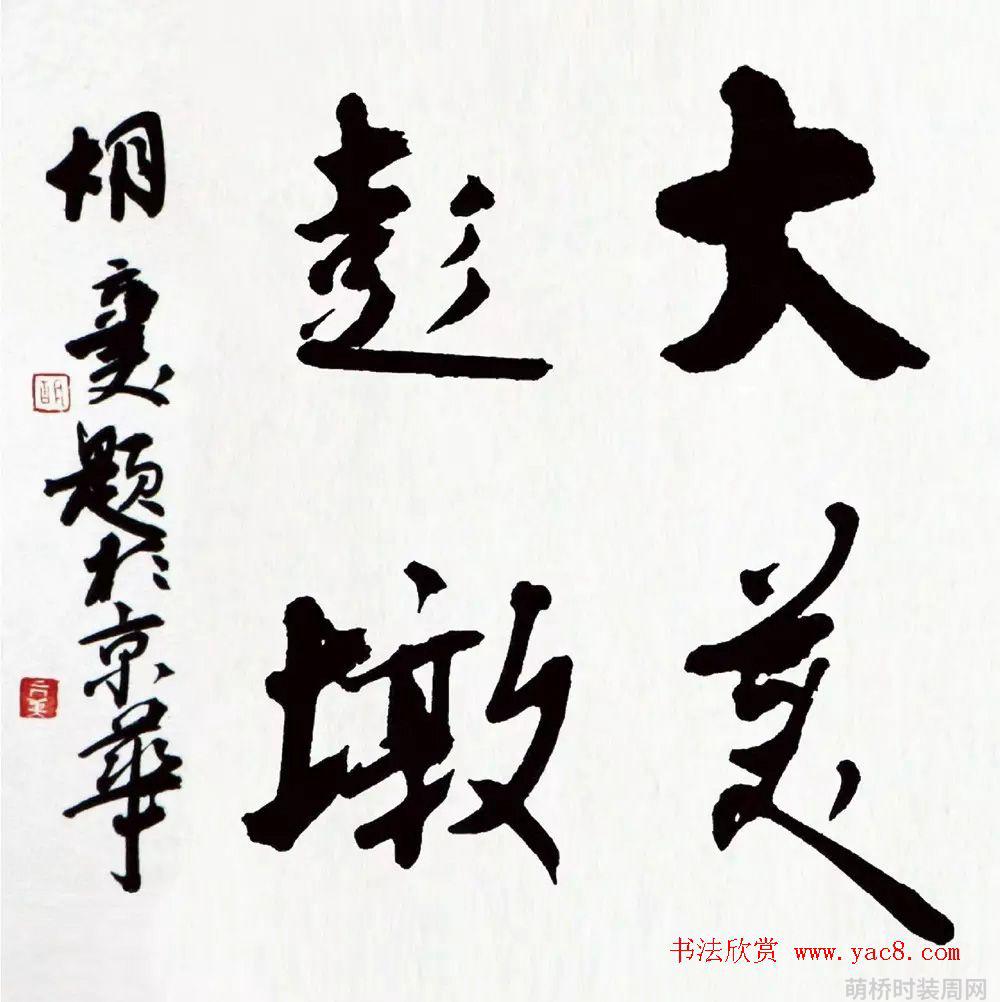 大美
彭墩
胡变美题於京華
书法欣赏 www.yac8.com
萌桥时装周网